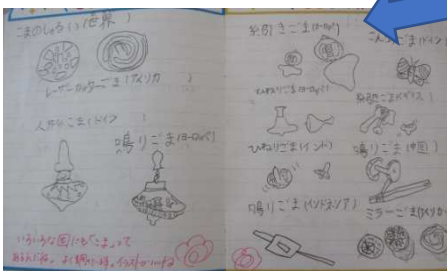 こまのしゅるい(世界)
レーザーカッターごま(アメリカ)
人形ごま(ドイツ)
鳴りごま(ヨーロッパ)
いろいろな国にも「こま」って
あるんだね。よく調べたね。イラストがいいね
糸引きごま(ヨーロッパ)
ごま(ドイツ)
ひねりごま(ヨーロッパ)
ひねりごま(インド)
鳴りごま(中国)
鳴りごま(インドネシア)
ミラーごま(アメリカ)